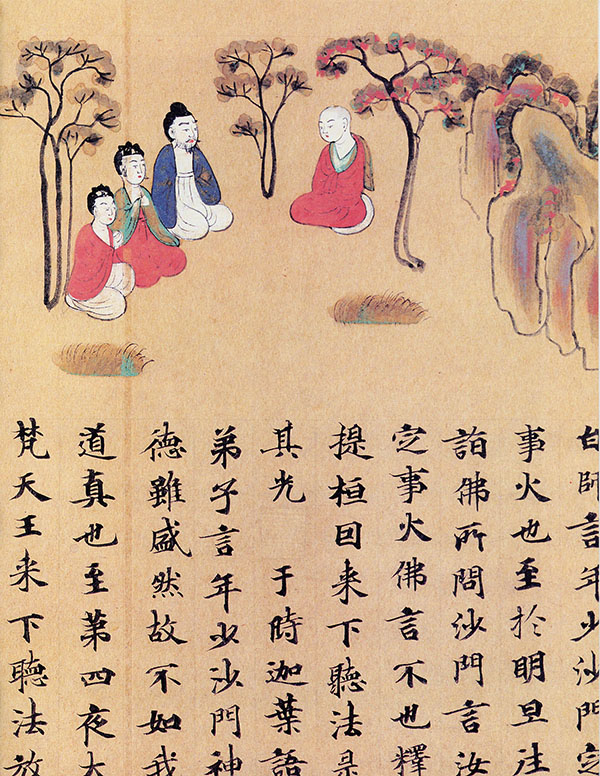 白師言年少沙門定
事火也至於明旦往
詣佛所問沙門言汝
定事火佛言不也釋
提桓回来下聽法是
其光　于時迦葉語
弟子言年少沙門神
德雖盛然故不如我
道真也至第四夜大
梵天王来下聽法放